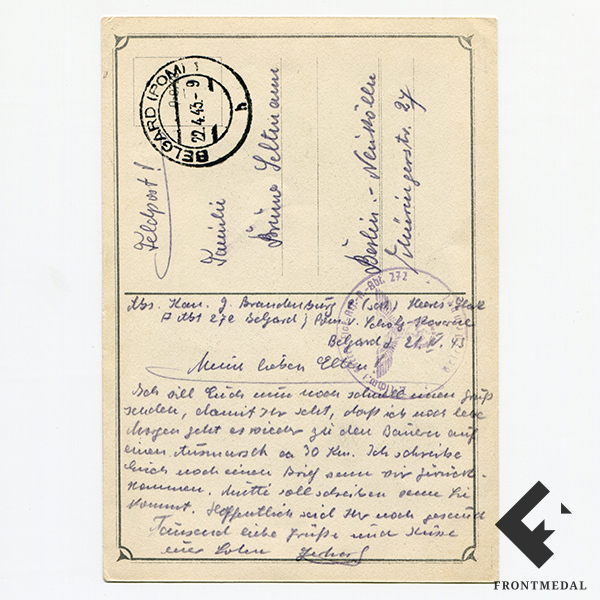 BELGARD (POM)
22.4.43.-9
h
Feldpost!
Familie
Bruno Seltmann
Berlin.-Neukölln
27
Abs. Kan. J. Brandenburg Heeres-Flak
Abt 272 Belgard / Pom v.
Belgard d. 21.IV.43
-Abt. 272
Meine lieben Eltern!
Ich will Euch nun noch schnell einen Gruß
senden, damit Ihr seht, daß ich noch lebe
Morgen geht es wieder zu den Bauern auf
einen Ausmarsch ca 30 Km. Ich schreibe
Euch noch einen Brief wenn wir zurück-
kommen. Mutti soll schreiben wenn Sie
kommt. Hoffentlich seid Ihr noch gesund
Tausend liebe Grüße und Küsse
euer Sohn Gerhard
FRONTMEDAL